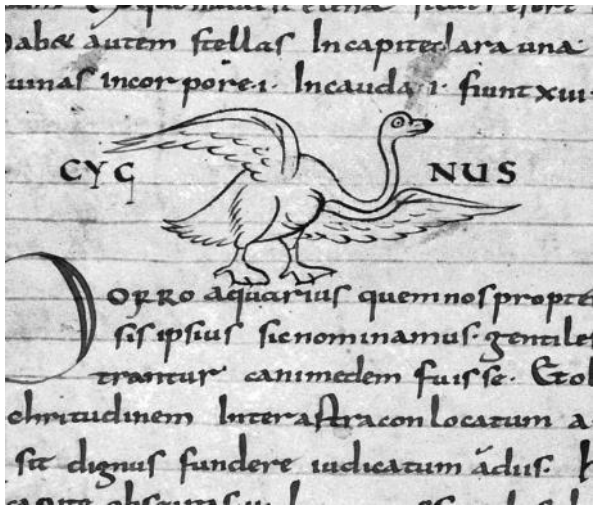 abæ autem stellas Incapite clara una
uinas incorpore · i · Incauda · i · fiunt xiii
CYG NUS
PORRO aquarius quem nos propte
sis ipsius sic nominamus · gentiles
trantur canimedem fuisse · Et ob
chritudinem Inter astra conlocatum a
sit dignus fundere iudicatum adus ·